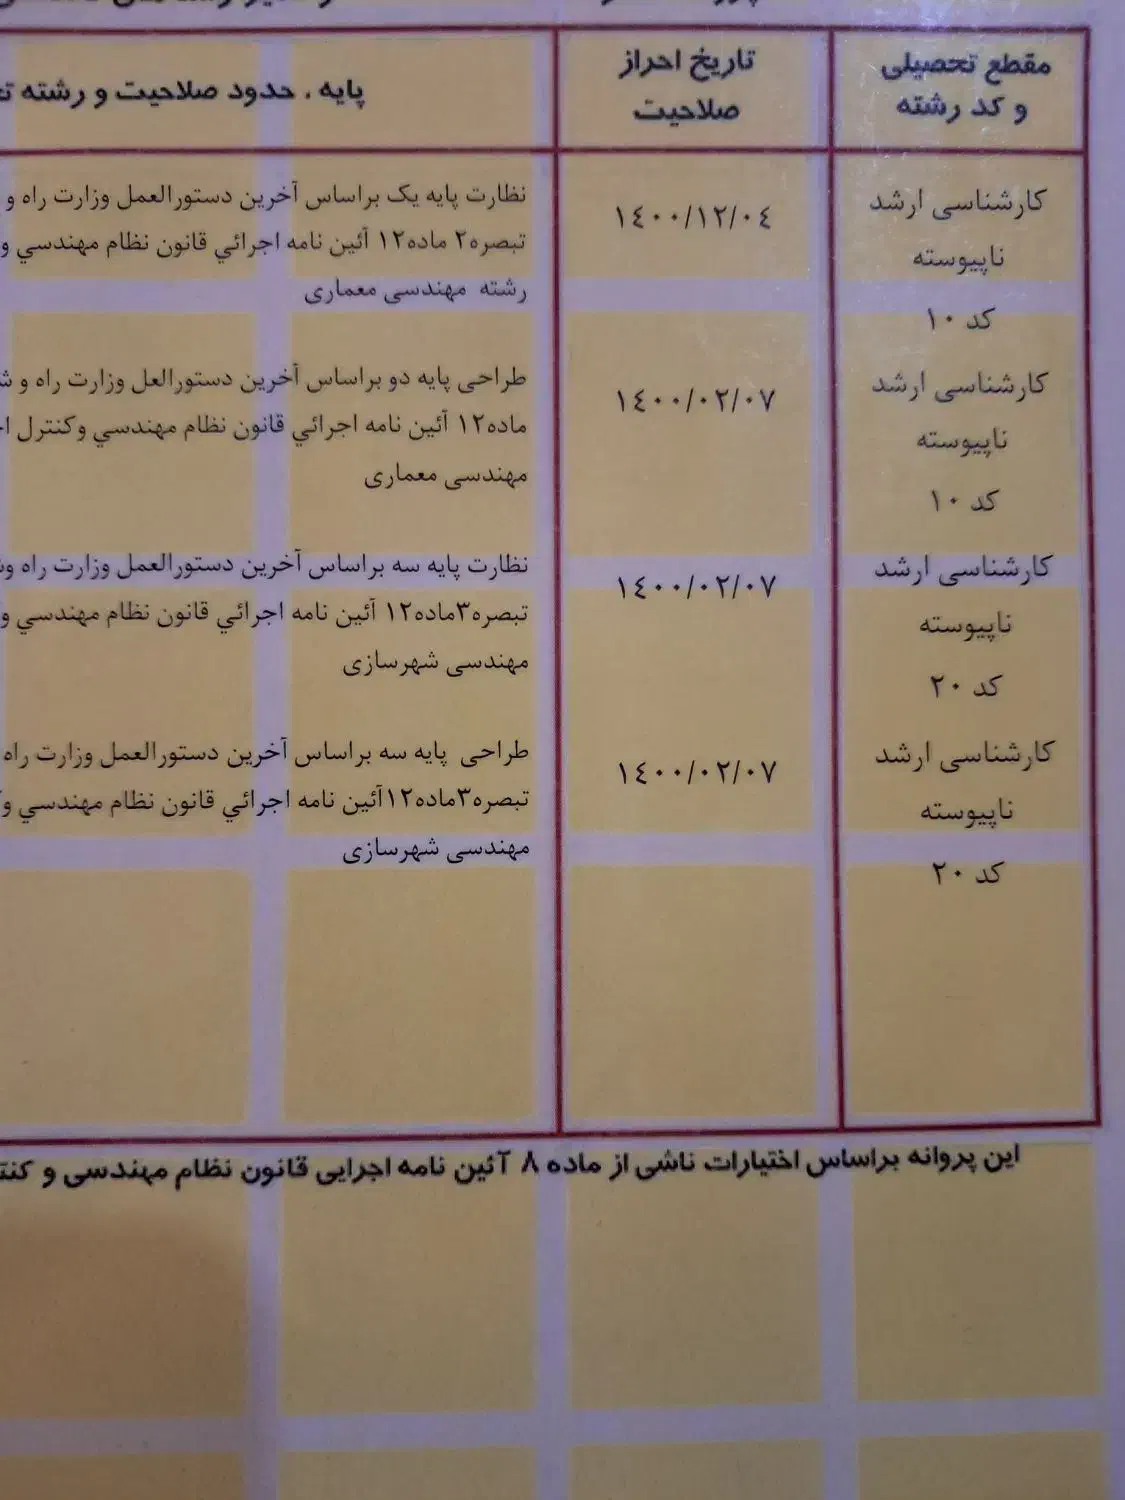 مقطع تحصیلی
و کد رشته
تاریخ احراز
صلاحیت
پایه ، حدود صلاحیت و رشته
کارشناسی ارشد
ناپیوسته
کد ۱۰
۱٤۰۰/۱۲/۰٤
نظارت پایه یک براساس آخرین دستورالعمل وزارت راه و
تبصره۲ ماده۱۲ آئین نامه اجرائي قانون نظام مهندسي و
رشته مهندسی معماری
کارشناسی ارشد
ناپیوسته
کد ۱۰
۱٤۰۰/۰۲/۰۷
طراحی پایه دو براساس آخرین دستورالعل وزارت راه و
ماده۱۲ آئین نامه اجرائي قانون نظام مهندسي وکنترل
مهندسی معماری
کارشناسی ارشد
ناپیوسته
کد ۲۰
۱٤۰۰/۰۲/۰۷
نظارت پایه سه براساس آخرین دستورالعمل وزارت راه
تبصره۳ماده۱۲ آئین نامه اجرائي قانون نظام مهندسي و
مهندسی شهرسازی
کارشناسی ارشد
ناپیوسته
کد ۲۰
۱٤۰۰/۰۲/۰۷
طراحی پایه سه براساس آخرین دستورالعمل وزارت راه
تبصره۳ماده۱۲آئین نامه اجرائي قانون نظام مهندسي
مهندسی شهرسازی
این پروانه براساس اختیارات ناشی از ماده ۸ آئین نامه اجرایی قانون نظام مهندسی و